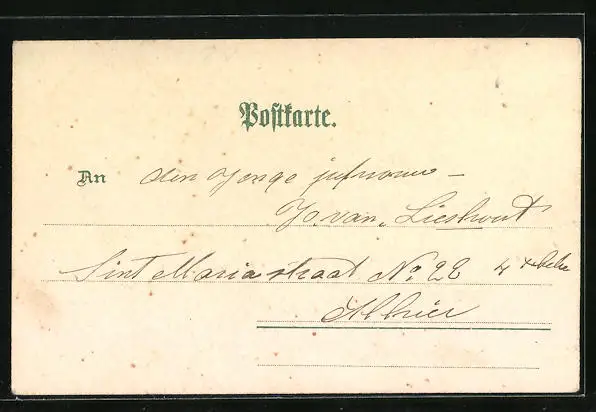 Postkarte.
An den Jonge jufvrouw –
J. van Lieshout
Sint Mariastraat No 22
Alhier